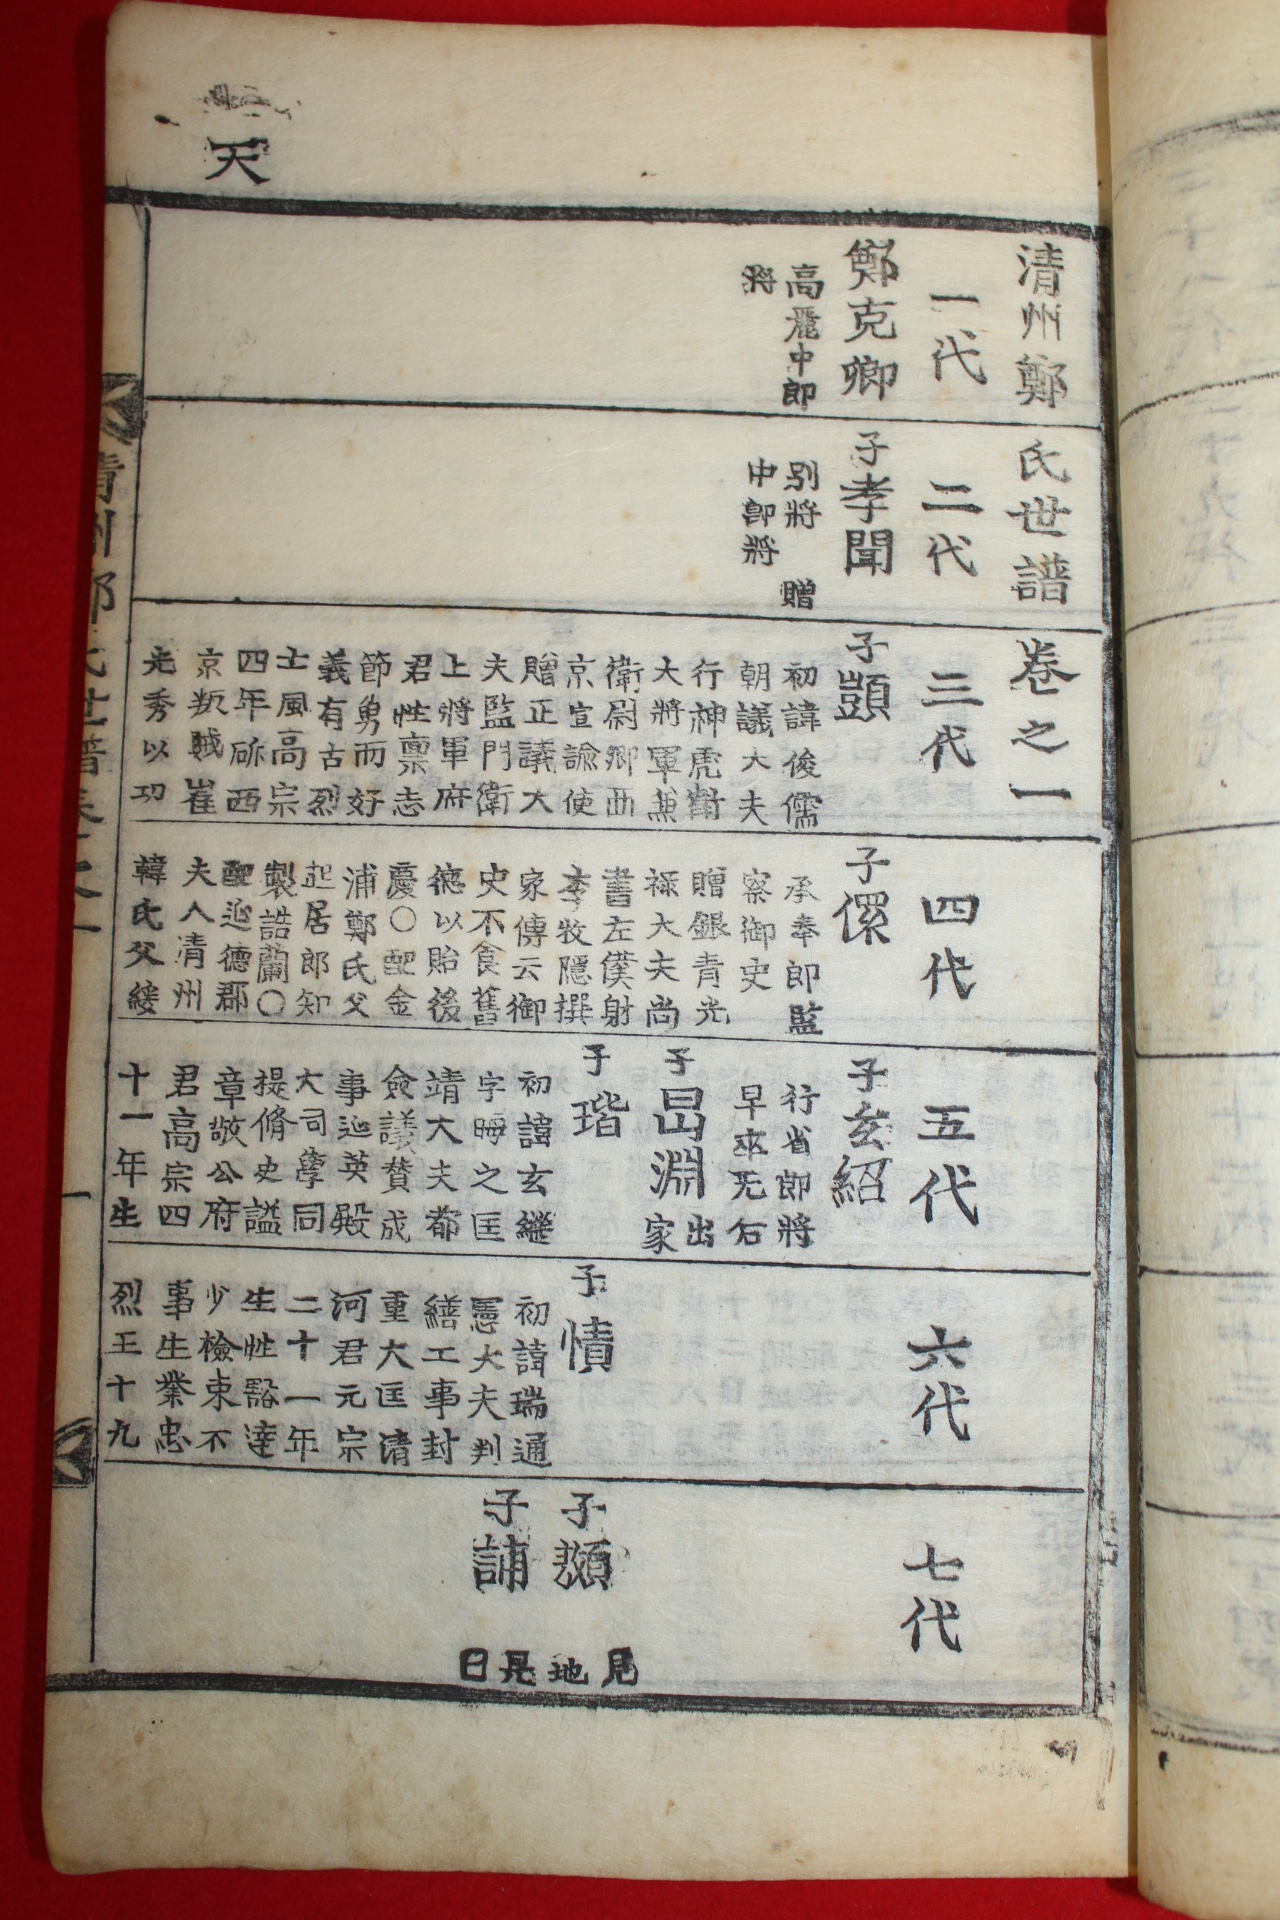 天
清州鄭氏世譜卷之一
一代
二代
三代
四代
五代
六代
七代
鄭克卿
高麗中郎
將
子孝聞
別將 贈
中郎將
子顗
初諱俊儒
朝議大夫
行神虎衛
大將軍兼
衛尉卿西
京宣諭使
贈正議大
夫監門衛
上將軍府
君性禀志
節勇而好
義有古烈
士風高宗
四年斫西
京叛賊崔
光秀以功
子儇
承奉郎監
察御史
贈銀青光
禄大夫尚
書左僕射
李牧隱撰
家傳云御
史不食舊
德以貽後
慶〇配金
浦鄭氏父
起居郎知
製誥蘭〇
配迎德郡
夫人清州
韓氏父綏
子玄紹
行省郎將
早卒无后
子昷淵
出
家
子瑎
初諱玄繼
字晦之匡
靖大夫都
僉議賛成
事迎英殿
大司學同
提脩史謚
章敬公府
君高宗四
十一年生
子㥽
初諱瑞通
憲大夫判
繕工事封
重大匡清
河君元宗
二十一年
生性豁達
少檢束不
事生業忠
烈王十九
子䫨
子誧
居地是日
清州鄭氏世譜卷之一
一